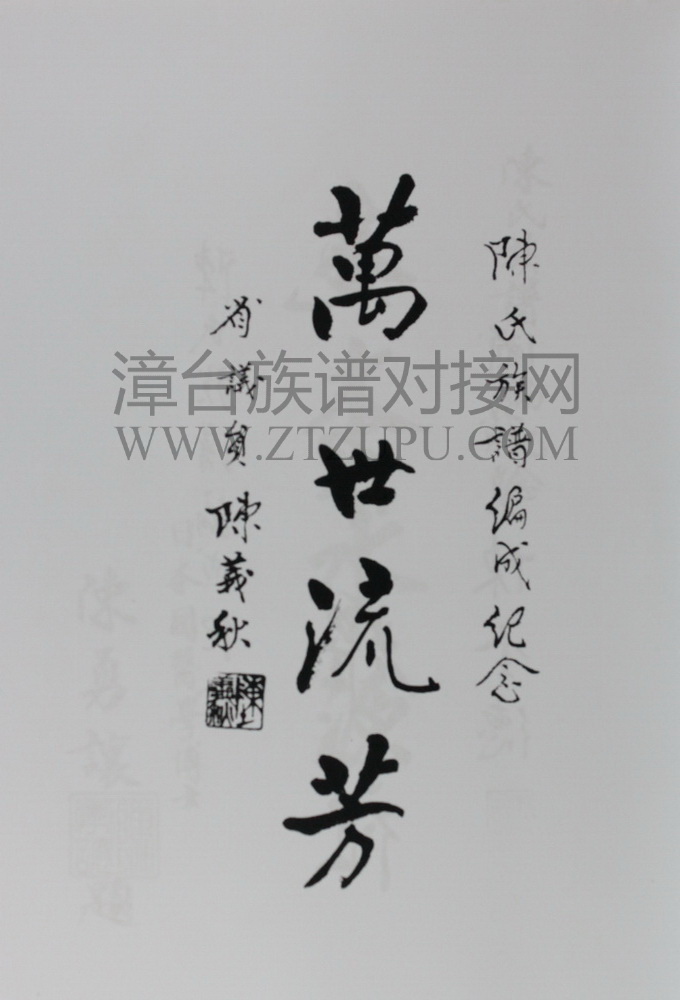 陳氏族譜編成紀念
萬世流芳
省議員陳義秋
漳台族谱对接网
WWW.ZTZUPU.COM